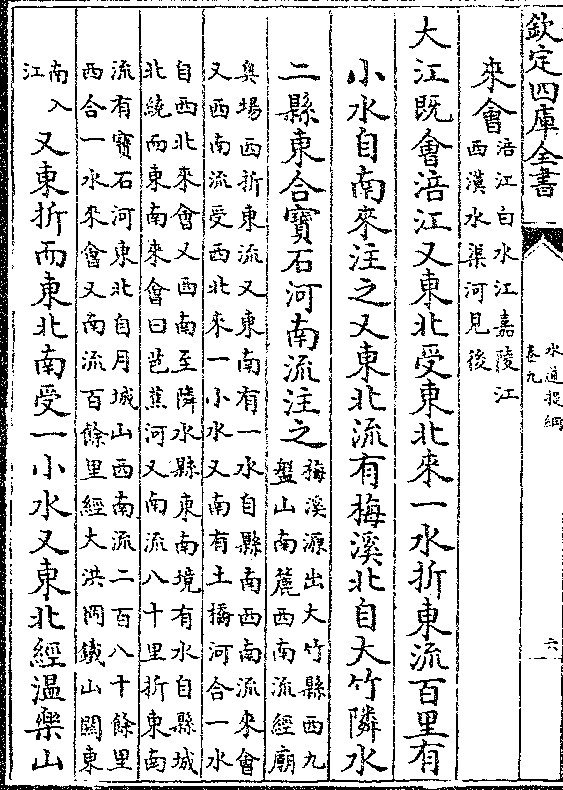 欽定四庫全書
水道提綱
卷九
六
來會涪江白水江嘉陵江
西漢水渠河見後
大江既會涪江又東北受東北來一水折東流百里有
小水自南來注之又東北流有梅溪北自大竹隣水
二縣東合寶石河南流注之梅溪源出大竹縣西九
盤山南麓西南流經廟
奧場西折東流又東南有一水自縣南西南流來會
又西南流受西北來一小水又南有土橋河合一水
自西北來會又西南至隣水縣東南境有水自縣城
北繞而東南來會曰芭蕉河又南流八十里折東南
流有寶石河東北自月城山西南流二百八十餘里
西合一水來會又南流百餘里經大洪岡鐵山關東
南入
江又東折而東北南受一小水又東北經温樂山